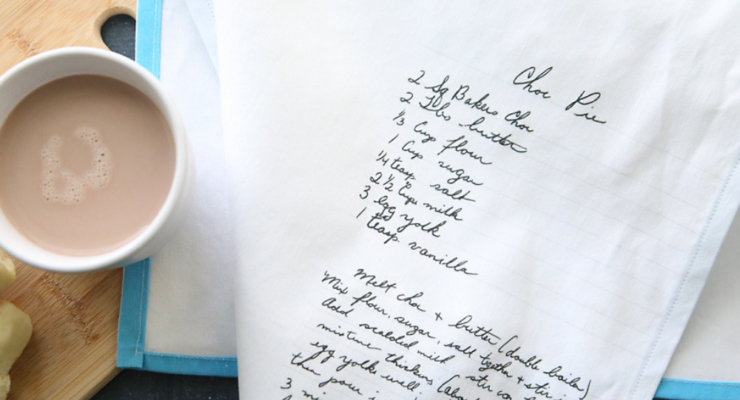 Choc Pie
2 Sq Bakers Choc
2 Tlbs butter
1/3 Cup flour
1 Cup sugar
1/4 teasp salt
2 1/2 Cups milk
3 egg yolk
1 teasp vanilla
Melt choc + butter (double boiler)
Mix flour, sugar, salt together + stir in
Add scalded milk stir
mixture thickens
egg yolks well
then pour
3